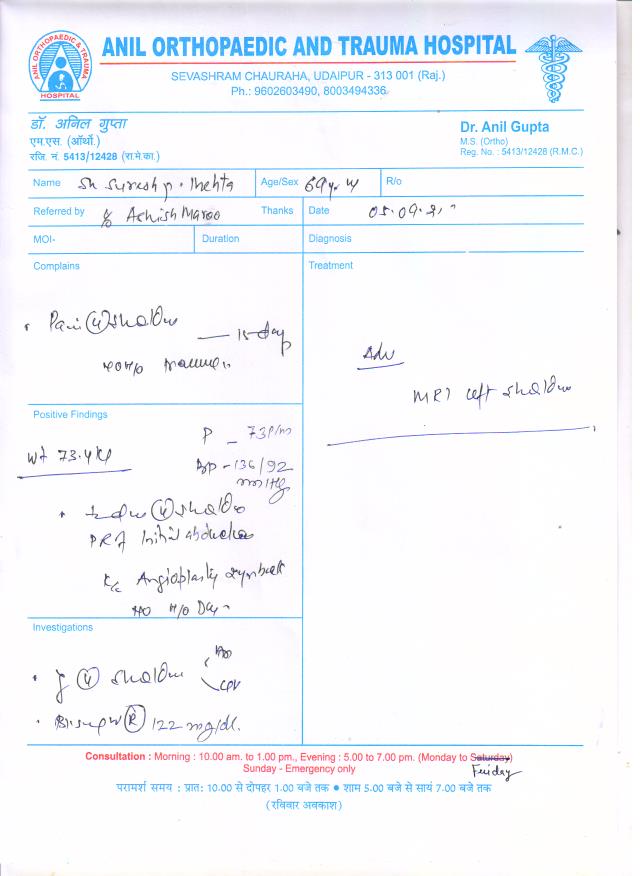 ANIL ORTHOPAEDIC & TRAUMA
HOSPITAL
ANIL ORTHOPAEDIC AND TRAUMA HOSPITAL
SEVASHRAM CHAURAHA, UDAIPUR - 313 001 (Raj.)
Ph.: 9602603490, 8003494336
डॉ. अनिल गुप्ता
एम.एस. (ऑर्थो.)
रजि. नं. 5413/12428 (रा.मे.का.)
Dr. Anil Gupta
M.S. (Ortho)
Reg. No. : 5413/12428 (R.M.C.)
Name Sh Suresh p. Mehta Age/Sex 69 yr R/o
Referred by Ashish Maroo Thanks Date 05.09.2
MOI- Duration Diagnosis
Complains
Pain (L) shoulder — 15 day
no H/o trauma
Treatment
Adv
MRI left shoulder
Positive Findings
P - 73 P/m
Wt 73.4 kg
BP - 136/92
mmHg
(L) shoulder
initial abduction
K/c Angioplasty
No H/o
Investigations
(L) shoulder
(R) 122 mg/dl.
Consultation : Morning : 10.00 am. to 1.00 pm., Evening : 5.00 to 7.00 pm. (Monday to Saturday)
Friday
Sunday - Emergency only
परामर्श समय : प्रात: 10.00 से दोपहर 1.00 बजे तक ● शाम 5.00 बजे से सायं 7.00 बजे तक
(रविवार अवकाश)